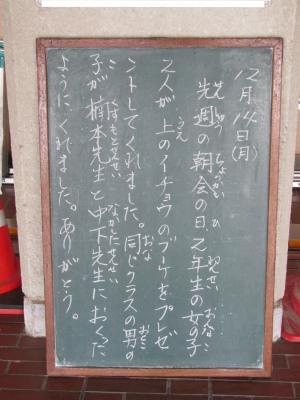 12月14日(月)
先週の朝会の日、2年生の女の子
2人が上のイチョウのブーケをプレゼ
ントしてくれました。同じクラスの男の
子が楠本先生と中下先生におくった
ように、くれました。ありがとう。